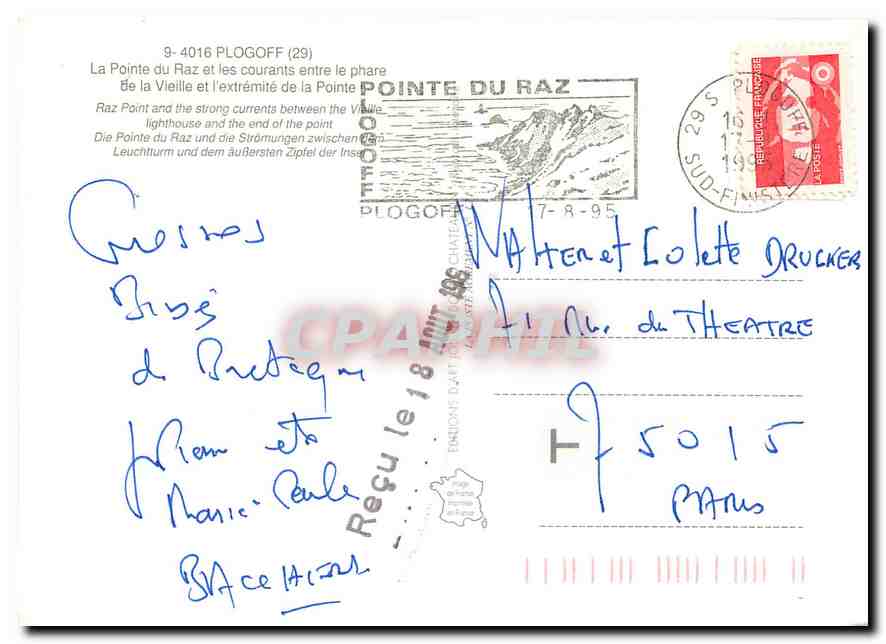 9- 4016 PLOGOFF (29)
La Pointe du Raz et les courants entre le phare
de la Vieille et l'extrémité de la Pointe
Raz Point and the strong currents between the Vieille
lighthouse and the end of the point
Die Pointe du Raz und die Strömungen zwischen dem
Leuchtturm und dem äußersten Zipfel der Insel
POINTE DU RAZ
PLOGOFF
PLOGOFF 7-8-95
29 S PLOGOFF
16
SUD-FINISTERE
REPUBLIQUE FRANÇAISE
LA POSTE
Grosses
Bises
de Bretagne
et
Marie Paule
Walter et Colette DRUCKER
71 Rue du THEATRE
75015
PARIS
T
Reçu le 18 AOUT 199
EDITIONS D'ART
CPAPHIL
Image
de France